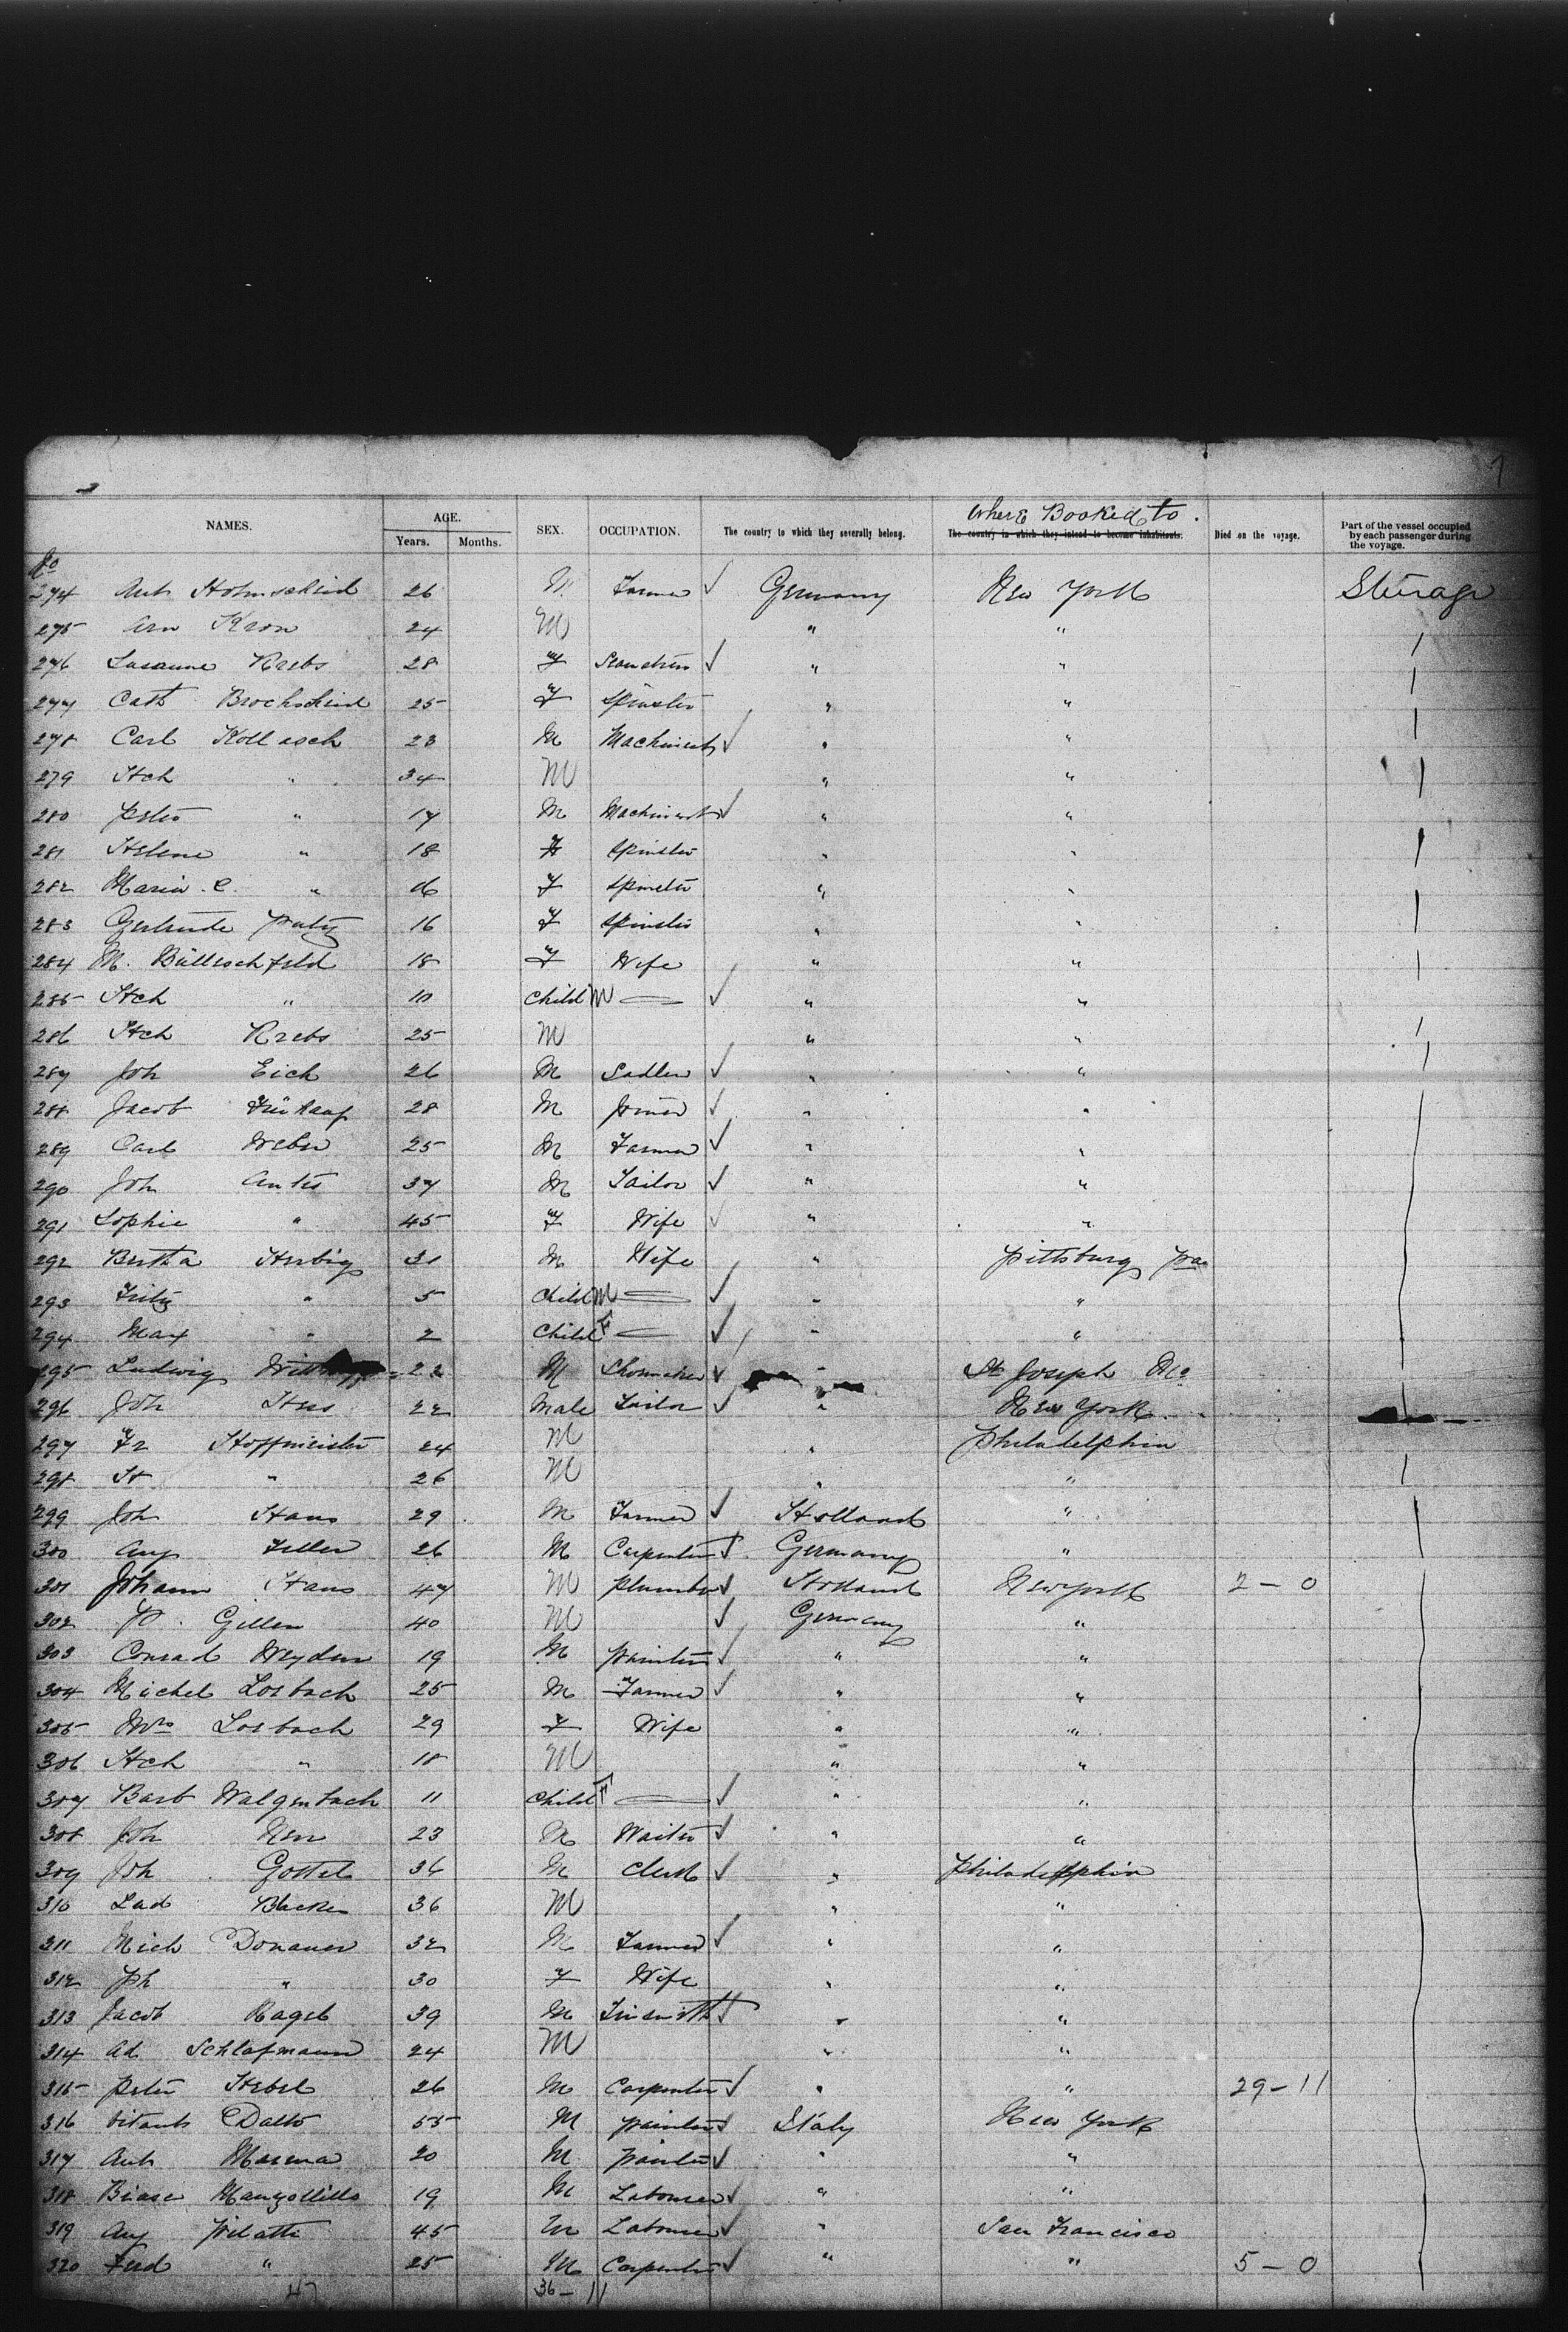 7
NAMES. AGE. SEX. OCCUPATION. The country to which they severally belong. Where Booked to. The country in which they intend to become inhabitants. Died on the voyage. Part of the vessel occupied by each passenger during the voyage.
Years. Months.
No
274 Ant Holmscheid 26 M Farmer ✓ Germany New York Steerage
275 Arn Kron 24 M " "
276 Susanne Krebs 28 F ✓ " "
277 Cath Brochscheid 25 F Spinster " "
278 Carl Kollasch 23 M Machinest ✓ " "
279 Hch " 34 M " "
280 Peter " 17 M Machinest ✓ " "
281 Helene " 18 F Spinster " "
282 Maria C. " 16 F Spinster " "
283 Gertrude Putz 16 F Spinster " "
284 M. Bülleschfeld 18 F Wife " "
285 Hch " 10 Child M — ✓ " "
286 Hch Krebs 25 M " "
287 Joh Eich 26 M Sadler ✓ " "
288 Jacob 28 M Joiner ✓ " "
289 Carl Weber 25 M Farmer ✓ " "
290 Joh Antes 37 M Tailor ✓ " "
291 Sophie " 45 F Wife ✓ " "
292 Bertha Herbig 31 M Wife " Pittsburg Pa
293 Fritz " 5 Child M — ✓ " "
294 Max " 2 Child F — ✓ " "
295 Ludwig 22 M Shomaker ✓ " St Joseph Mo
296 Joh Hess 22 Male Tailor ✓ " New York
297 Fr Hoffmeister 24 M " Philadelphia
298 H " 26 M " "
299 Joh Hans 29 M Farmer ✓ Holland "
300 Aug Feller 26 M Carpenter ✓ Germany "
301 Johann Hans 47 M Plumber ✓ Holland New York 2 – 0
302 P. Gillen 40 M ✓ Germany "
303 Conrad Weyden 19 M Painter ✓ " "
304 Michel Losbach 25 M Farmer ✓ " "
305 Mrs Losbach 29 F Wife " "
306 Hch " 18 M " "
307 Barb Walgenbach 11 Child F — ✓ " "
308 Joh 23 M Waiter ✓ " "
309 Joh Gottel 36 M Clerk ✓ " Philadelphia
310 Lad Backer 36 M " "
311 Mich Donauer 32 M Farmer ✓ " "
312 Ph " 30 F Wife " "
313 Jacob Nagel 39 M Tinsmith ✓ " "
314 Ad Schlafmann 24 M " "
315 Peter Hebel 26 M Carpenter ✓ " " 29 – 11
316 Dalto 55 M Painter ✓ Italy New York
317 Ant Marena 20 M Painter ✓ " "
318 Biase Manzollillo 19 M Labourer ✓ " "
319 Aug Pilatti 45 M Labourer ✓ " San Francisco
320 Ferd " 25 M Carpenter ✓ " " 5 – 0
47 36 – 11